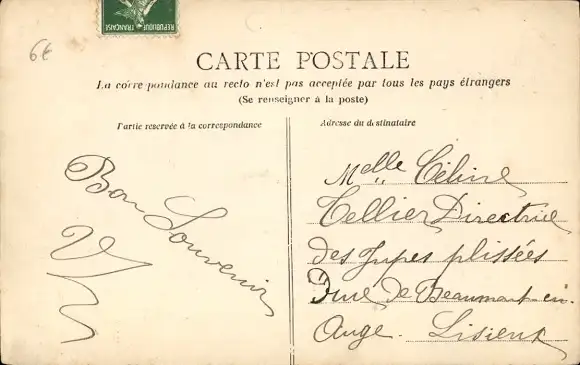 REPUBLIQUE FRANCAISE
6€
CARTE POSTALE
La correspondance au recto n'est pas acceptée par tous les pays étrangers
(Se renseigner à la poste)
Partie reservée à la correspondance
Adresse du destinataire
Bon Souvenir
Melle Céline
Tellier Directrice
des Jupes plissées
de Beaumont-en-
Auge. Lisieux